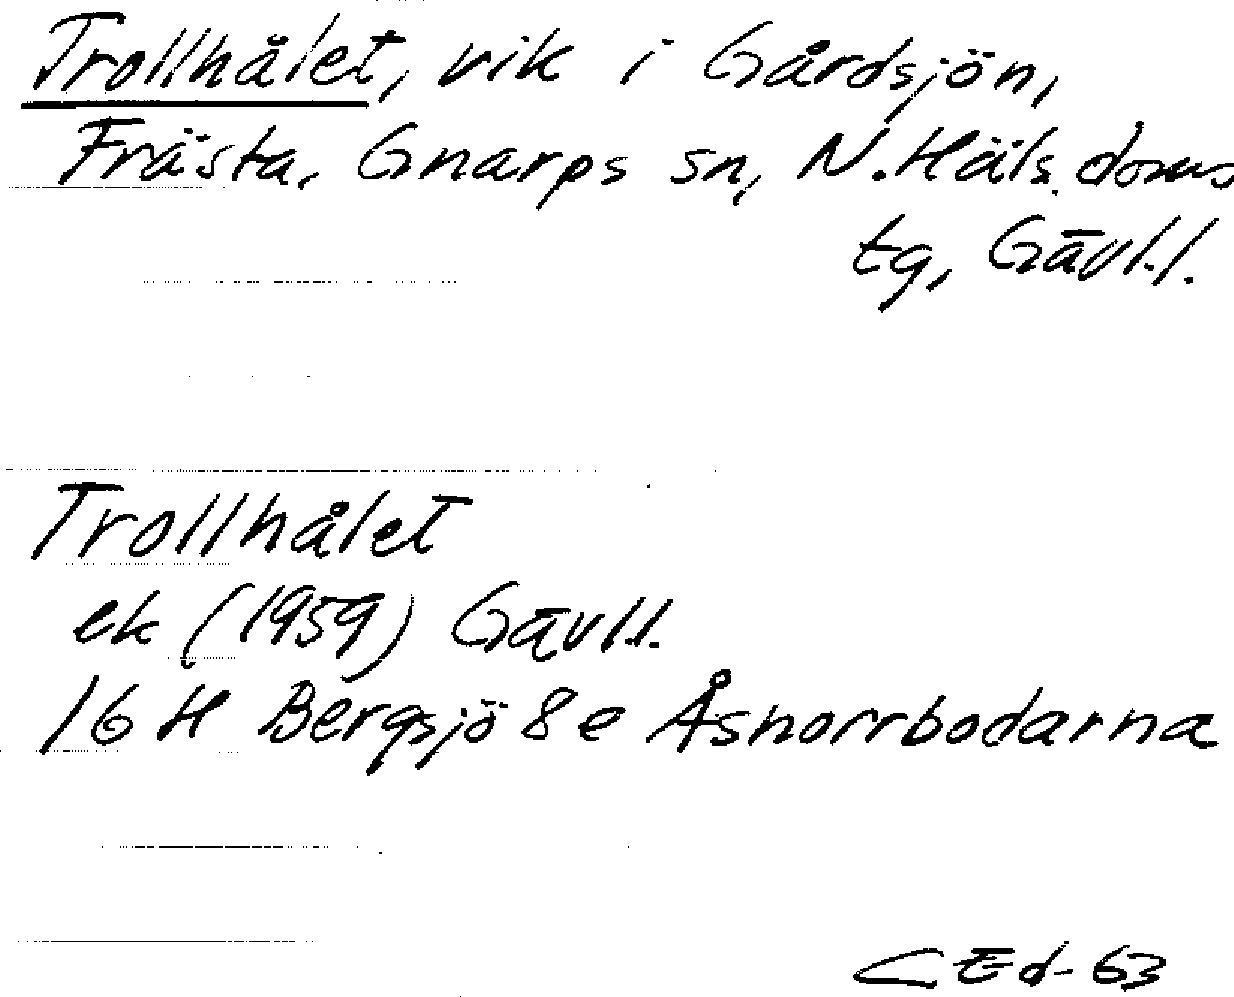 Trollhålet, vik i Gårdsjön,
Frästa, Gnarps sn, N. Häls. doms
tg, Gävl.l.
Trollhålet
ek (1959) Gävl.l.
16 H Bergsjö 8 e Åsnorrbodarna
CEd- 63